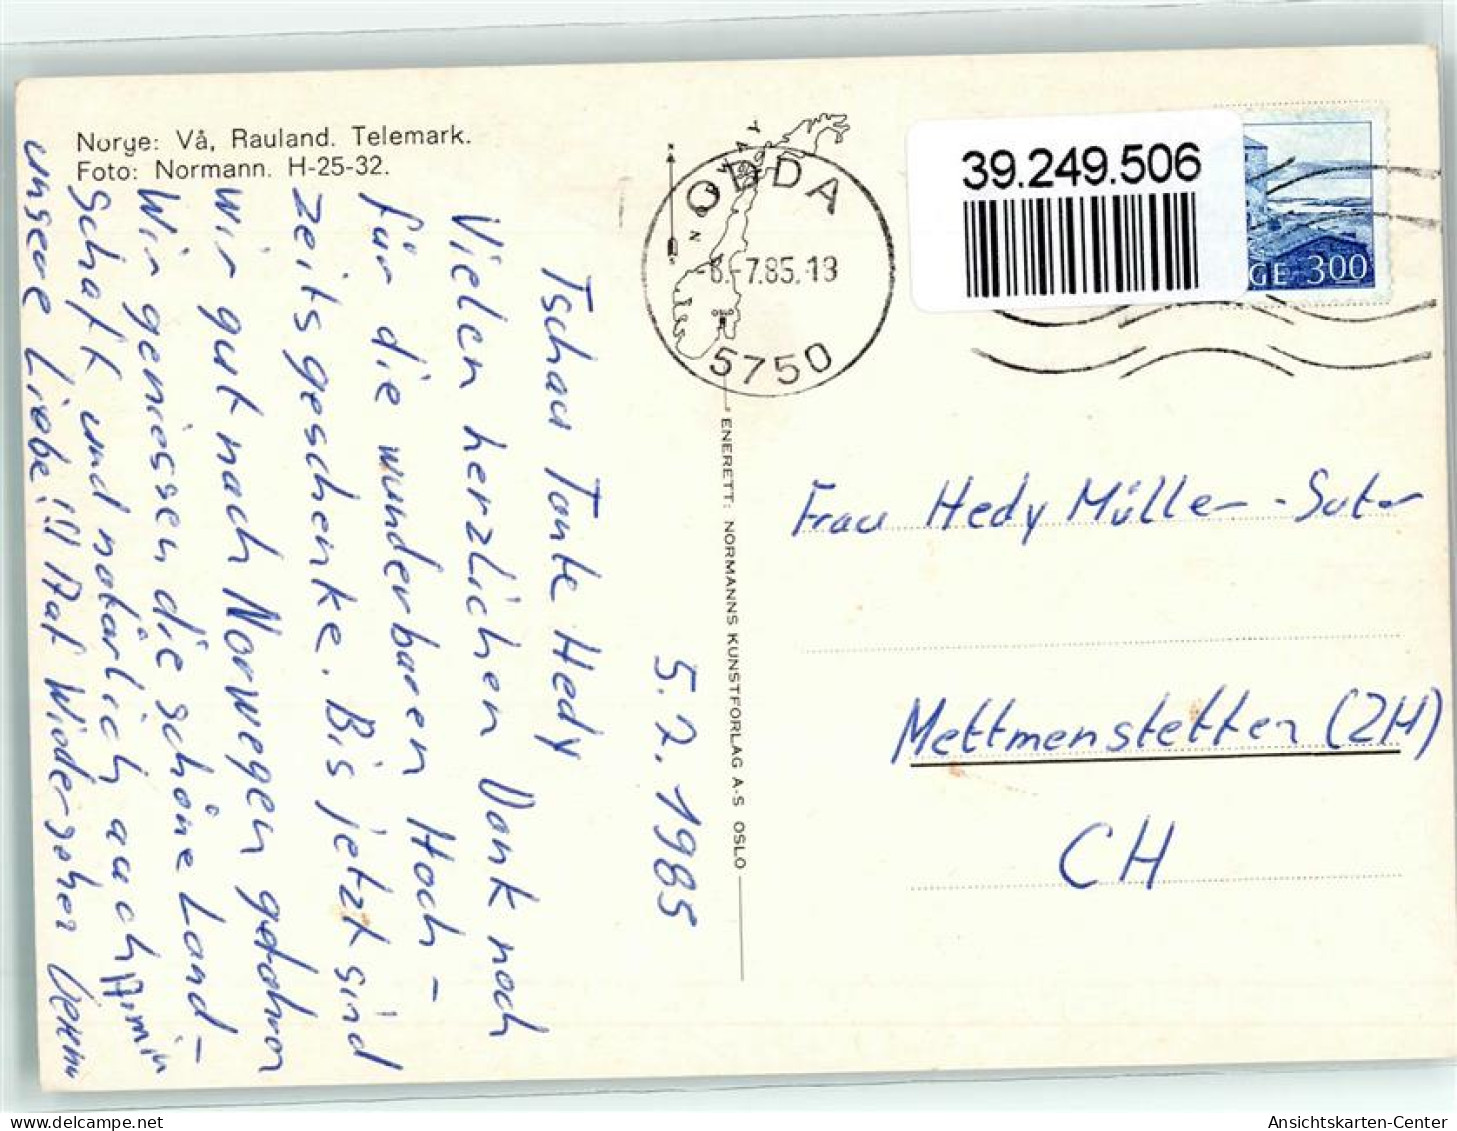 Norge: Vå, Rauland. Telemark.
Foto: Normann. H-25-32.
5.7.1985
Tschau Tante Hedy
Vielen herzlichen Dank noch
für die wunderbaren Hoch-
zeitsgeschenke. Bis jetzt sind
wir gut nach Norwegen gefahren
Wir geniessen die schöne Land-
schaft und natürlich auch
unsere Liebe!!! Auf Wiedersehen
Armin
ENERETT: NORMANNS KUNSTFORLAG A-S OSLO
NORWAY
ODDA
-6.-7.85.-13
OSLO
5750
39.249.506
GE 300
Frau Hedy Müller-Suter
Mettmenstetten (ZH)
CH
Ansichtskarten-Center